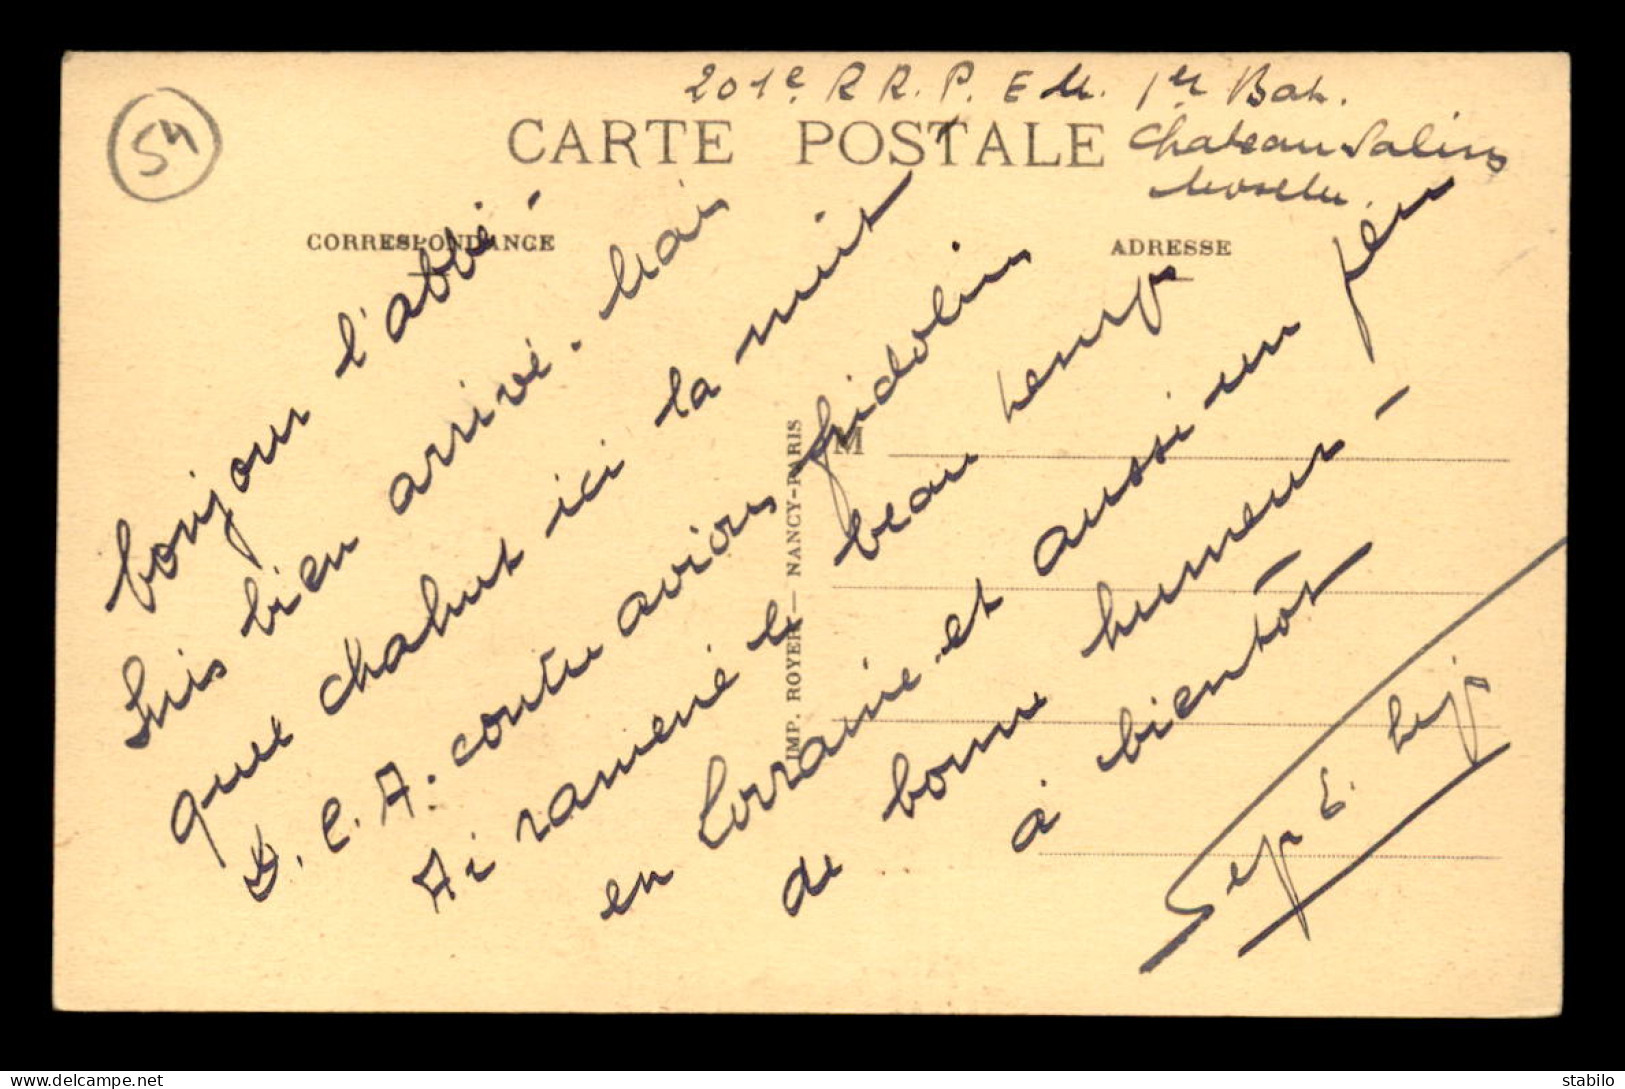 201e R R. P. E M. 1er Bat.
54
CARTE POSTALE
Chateau-Salins
Moselle.
CORRESPONDANCE
ADRESSE
bonjour l'abbé -
Suis bien arrivé. Mais
quel chahut ici la nuit
D.C.A. contre avions fridolins
Ai ramené le beau temps
en Lorraine et aussi un peu
de bonne humeur -
à bientôt
IMP. ROYER — NANCY-PARIS
M
stabilo